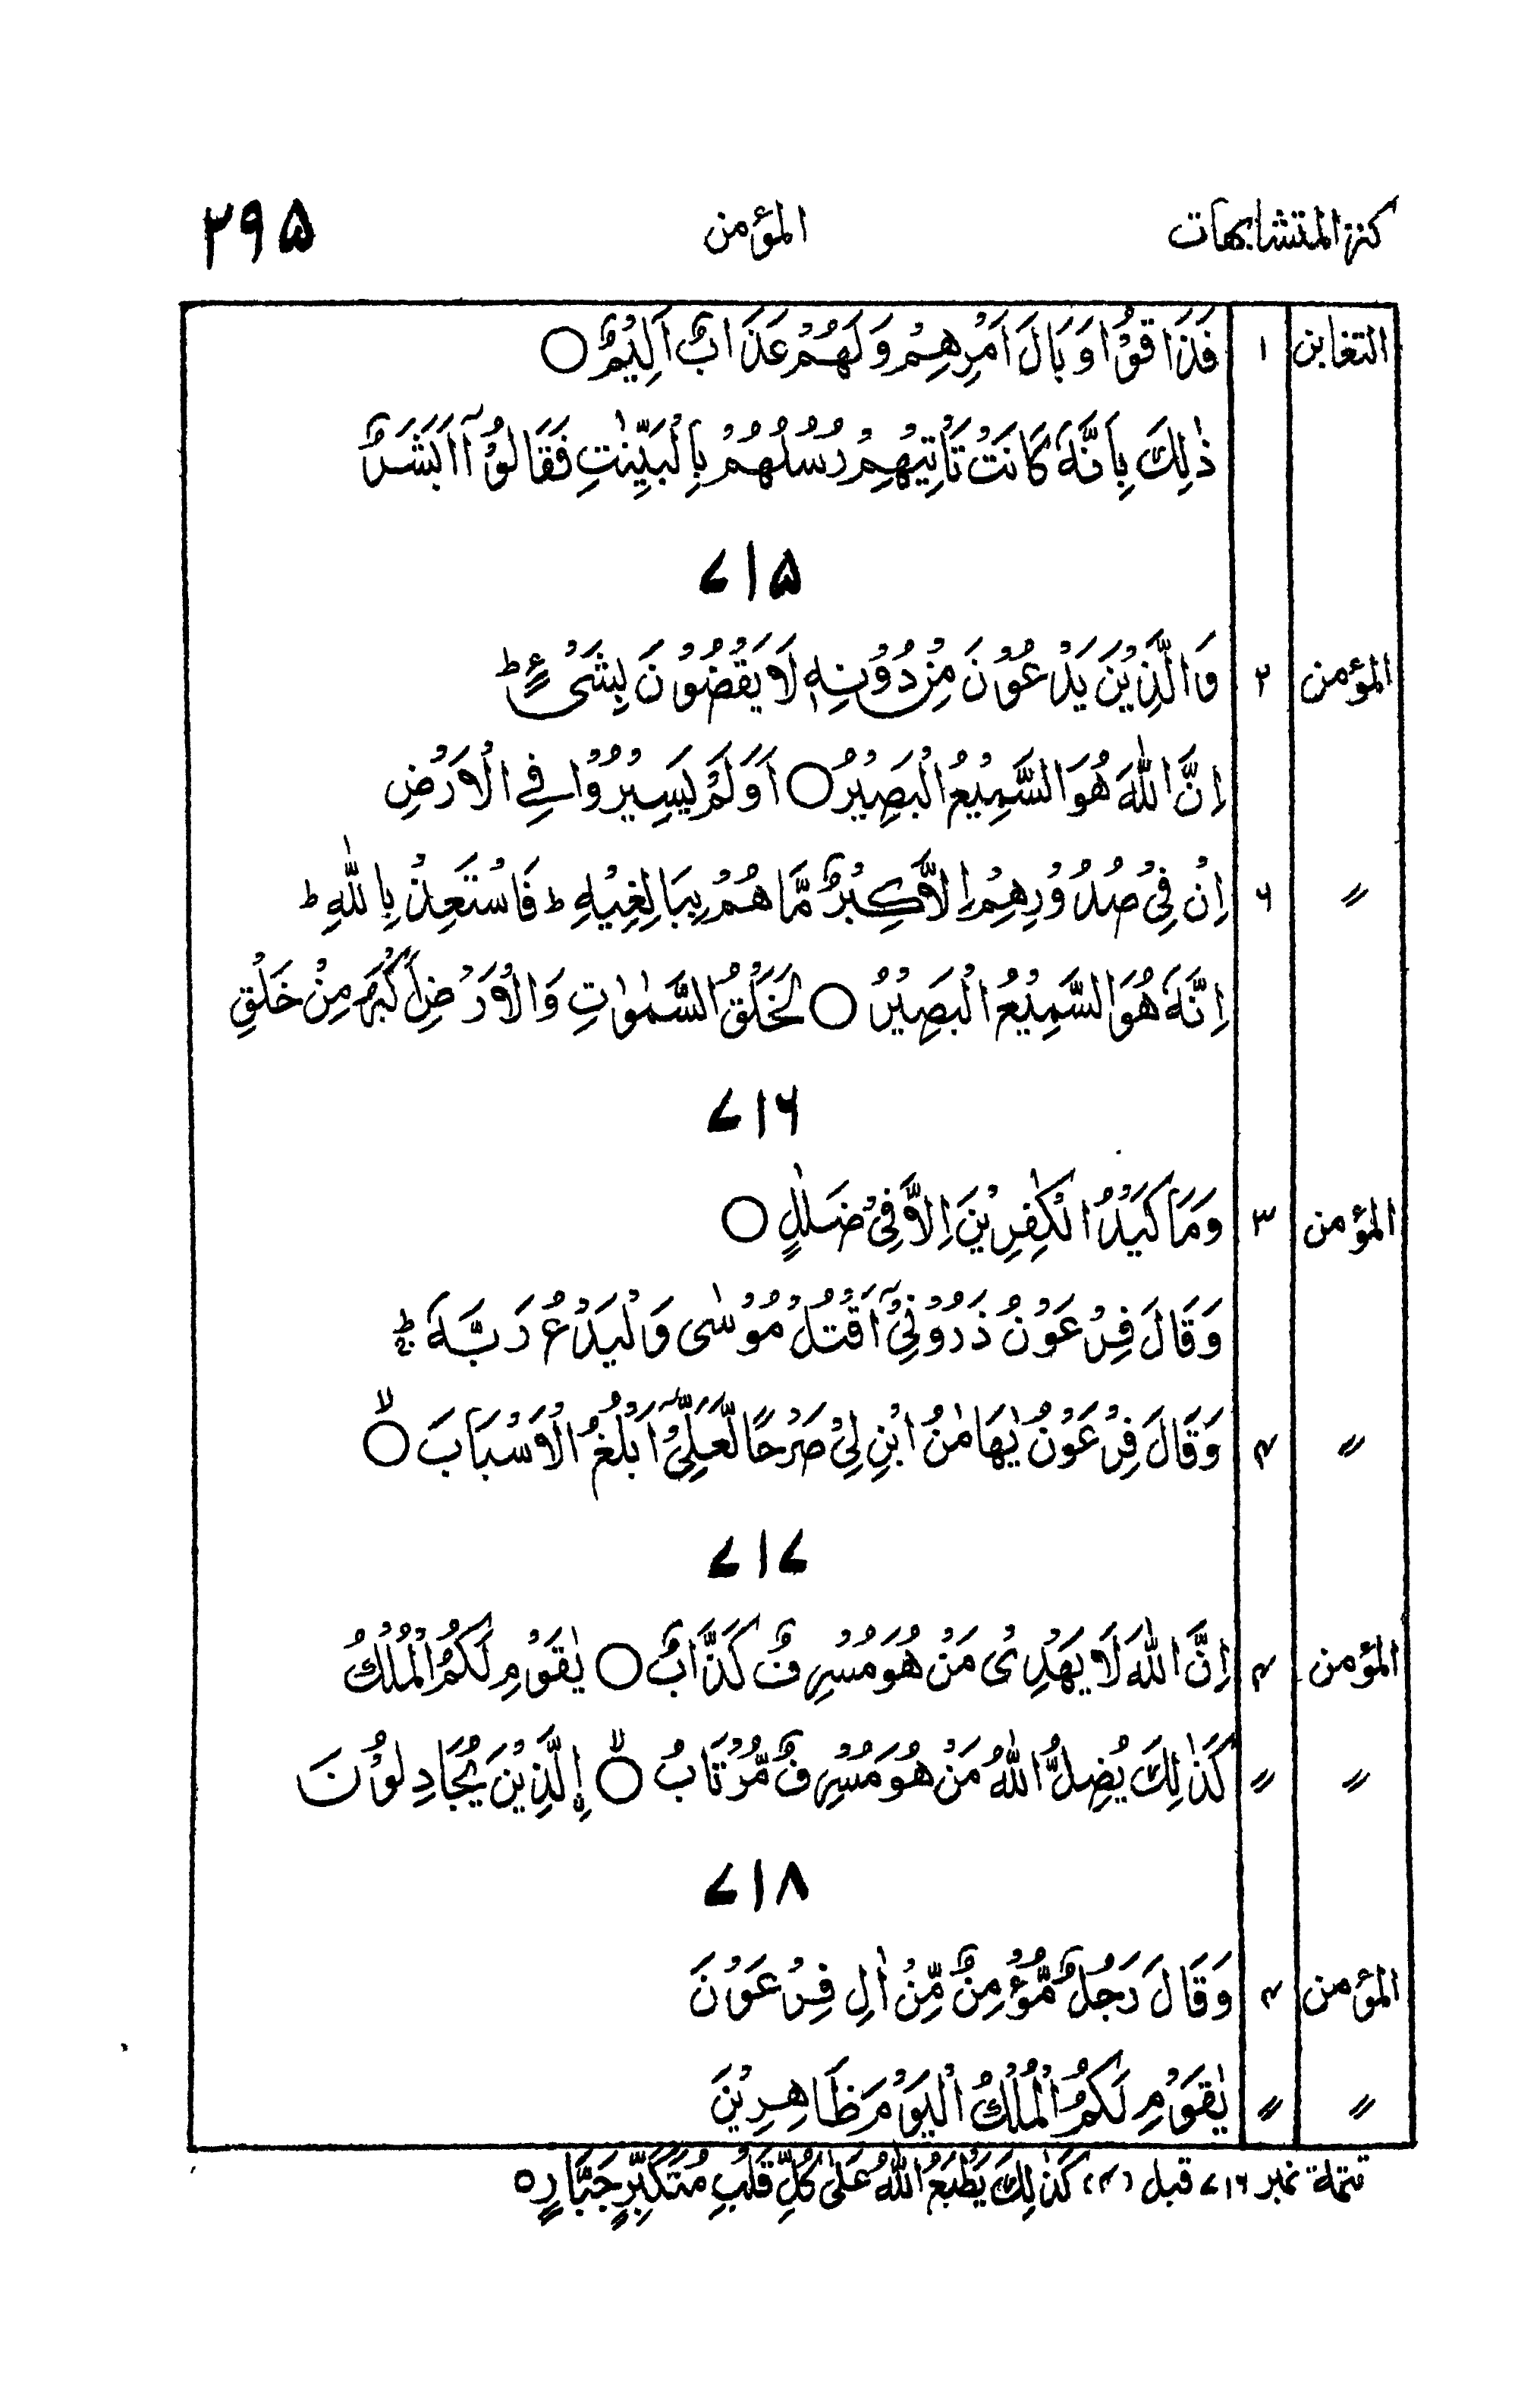 كنز المتشابهات المؤمن ۲۹۵
التغابن ۱ فَذَاقُوْا وَبَالَ اَمْرِهِمْ وَلَهُمْ عَذَابٌ اَلِيْمٌ ○
ذٰلِكَ بِاَنَّهٗ كَانَتْ تَاْتِيْهِمْ رُسُلُهُمْ بِالْبَيِّنٰتِ فَقَالُوْۤا اَبَشَرٌ
۷۱۵
المؤمن ۲ وَالَّذِيْنَ يَدْعُوْنَ مِنْ دُوْنِهٖ لَا يَقْضُوْنَ بِشَیْءٍ ؕ
اِنَّ اللّٰهَ هُوَ السَّمِيْعُ الْبَصِيْرُ ○ اَوَلَمْ يَسِيْرُوْا فِي الْاَرْضِ
〃 ۶ اِنْ فِیْ صُدُوْرِهِمْ اِلَّا كِبْرٌ مَّا هُمْ بِبَالِغِيْهِ ؕ فَاسْتَعِذْ بِاللّٰهِ ؕ
اِنَّهٗ هُوَ السَّمِيْعُ الْبَصِيْرُ ○ لَخَلْقُ السَّمٰوٰتِ وَالْاَرْضِ اَكْبَرُ مِنْ خَلْقِ
۷۱۶
المؤمن ۳ وَمَا كَيْدُ الْكٰفِرِيْنَ اِلَّا فِیْ ضَلٰلٍ ○
وَقَالَ فِرْعَوْنُ ذَرُوْنِیْۤ اَقْتُلْ مُوْسٰى وَلْيَدْعُ رَبَّهٗ ۚؕ
〃 ۴ وَقَالَ فِرْعَوْنُ يٰهَامٰنُ ابْنِ لِیْ صَرْحًا لَّعَلِّیْۤ اَبْلُغُ الْاَسْبَابَ ○ۙ
۷۱۷
المؤمن ۴ اِنَّ اللّٰهَ لَا يَهْدِیْ مَنْ هُوَ مُسْرِفٌ كَذَّابٌ ○ يٰقَوْمِ لَكُمُ الْمُلْكُ
〃 〃 كَذٰلِكَ يُضِلُّ اللّٰهُ مَنْ هُوَ مُسْرِفٌ مُّرْتَابُ ○ۙ اِلَّذِيْنَ يُجَادِلُوْنَ
۷۱۸
المؤمن ۴ وَقَالَ رَجُلٌ مُّؤْمِنٌ مِّنْ اٰلِ فِرْعَوْنَ
〃 〃 يٰقَوْمِ لَكُمُ الْمُلْكُ الْيَوْمَ ظَاهِرِيْنَ
تتملة نمبر ۷۱۶ قبل (۴) كَذٰلِكَ يَطْبَعُ اللّٰهُ عَلٰى كُلِّ قَلْبِ مُتَكَبِّرٍ جَبَّارٍ ○